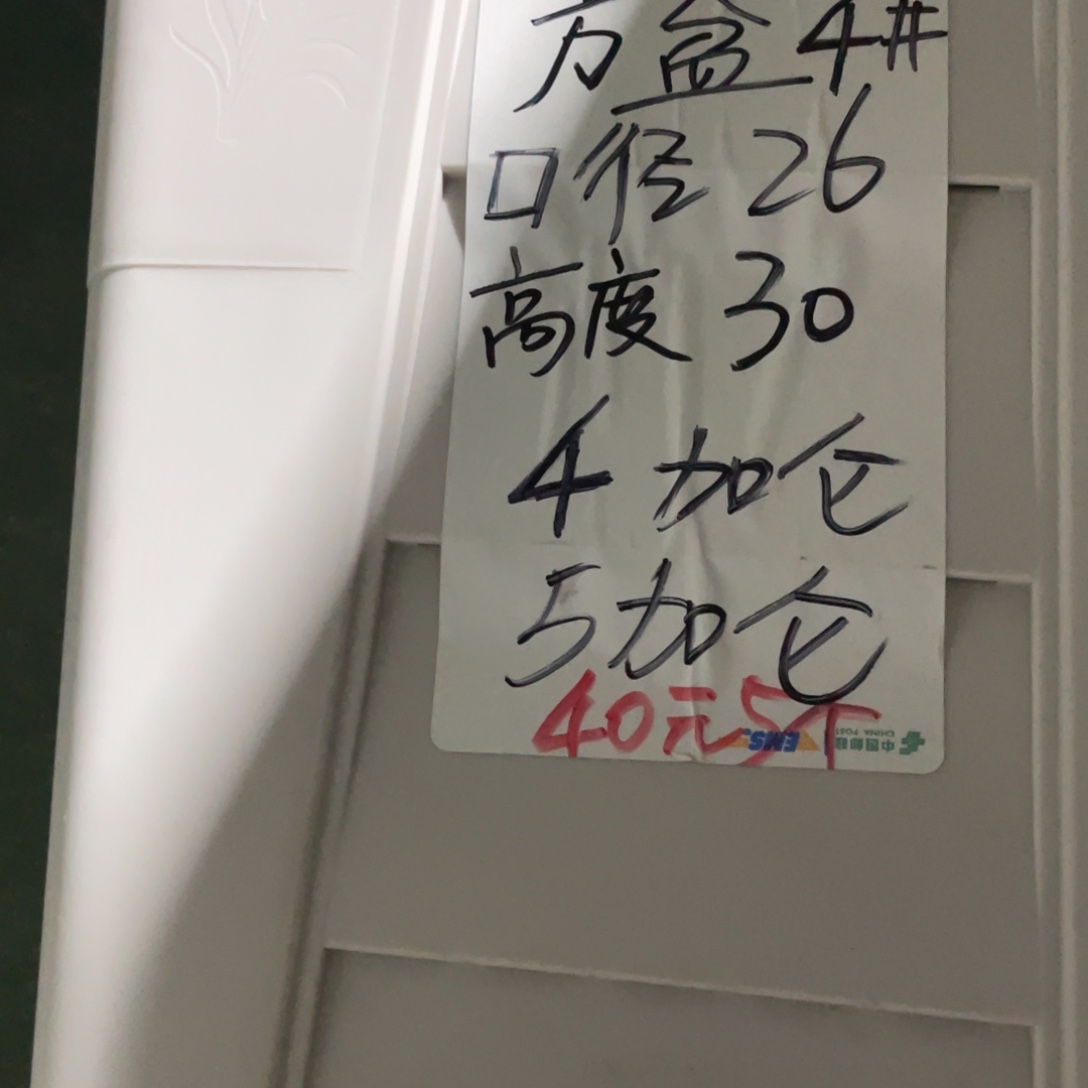 方盆4#
口径26
高度30
4加仑
5加仑
40元5个
EMS
中国邮政
CHINA POST